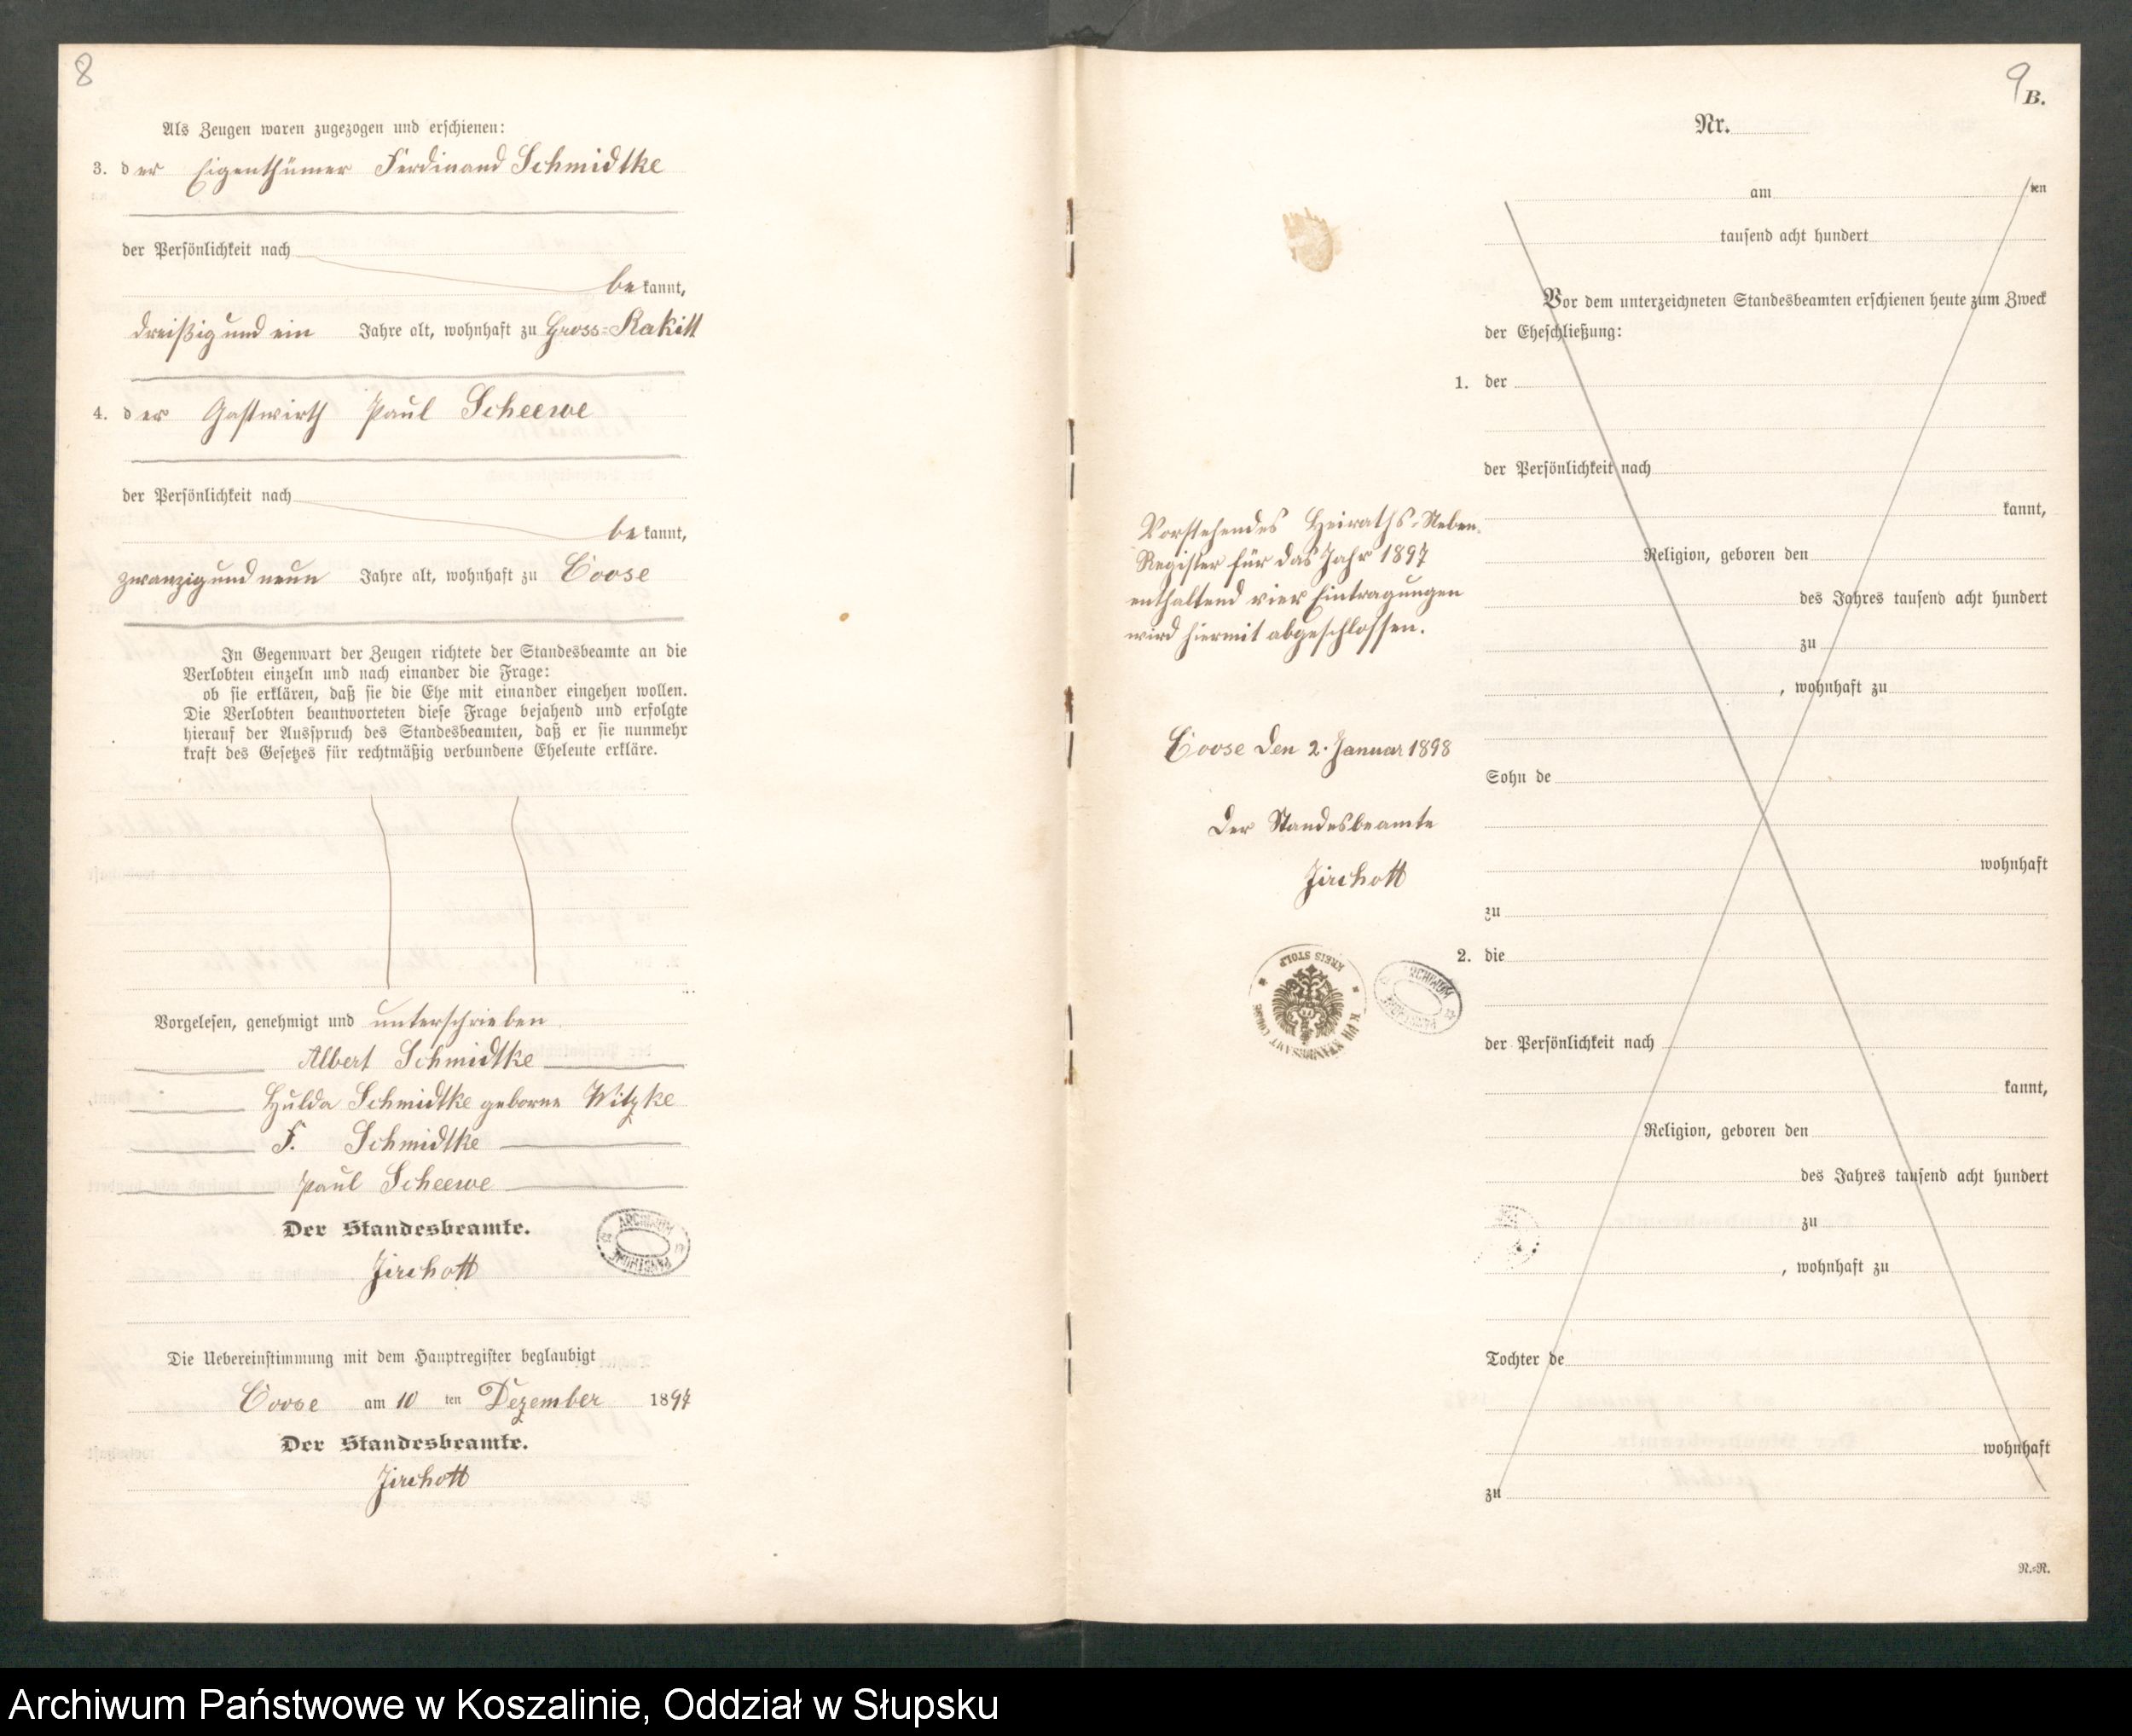 8
Als Zeugen waren zugezogen und erschienen:
3. der Eigenthümer Ferdinand Schmidtke
der Persönlichkeit nach
bekannt,
dreißig und ein Jahre alt, wohnhaft zu Gross-Rakitt
4. der Gastwirth Paul Scheewe
der Persönlichkeit nach
bekannt,
zwanzig und neun Jahre alt, wohnhaft zu Coose
In Gegenwart der Zeugen richtete der Standesbeamte an die
Verlobten einzeln und nach einander die Frage:
ob sie erklären, daß sie die Ehe mit einander eingehen wollen.
Die Verlobten beantworteten diese Frage bejahend und erfolgte
hierauf der Ausspruch des Standesbeamten, daß er sie nunmehr
kraft des Gesetzes für rechtmäßig verbundene Eheleute erkläre.
Vorgelesen, genehmigt und unterschrieben
Albert Schmidtke
Hulda Schmidtke geborne Witzke
F. Schmidtke
Paul Scheewe
Der Standesbeamte.
Jirchott
ARCHIWUM PAŃSTWOWE
Die Uebereinstimmung mit dem Hauptregister beglaubigt
Coose am 10 ten Dezember 1897
Der Standesbeamte.
Jirchott
9
B.
Nr.
am ten
tausend acht hundert
Vor dem unterzeichneten Standesbeamten erschienen heute zum Zweck
der Eheschließung:
1. der
der Persönlichkeit nach
kannt,
Religion, geboren den
des Jahres tausend acht hundert
zu
, wohnhaft zu
Sohn de
wohnhaft
zu
2. die
der Persönlichkeit nach
kannt,
Religion, geboren den
des Jahres tausend acht hundert
zu
, wohnhaft zu
Tochter de
wohnhaft
zu
R.=R.
Vorstehendes Heiraths-Neben-
Register für das Jahr 1897
enthaltend vier Eintragungen
wird hiermit abgeschlossen.
Coose den 2. Januar 1898
Der Standesbeamte
Jirchott
KREIS STOLP
ARCHIWUM
Archiwum Państwowe w Koszalinie, Oddział w Słupsku